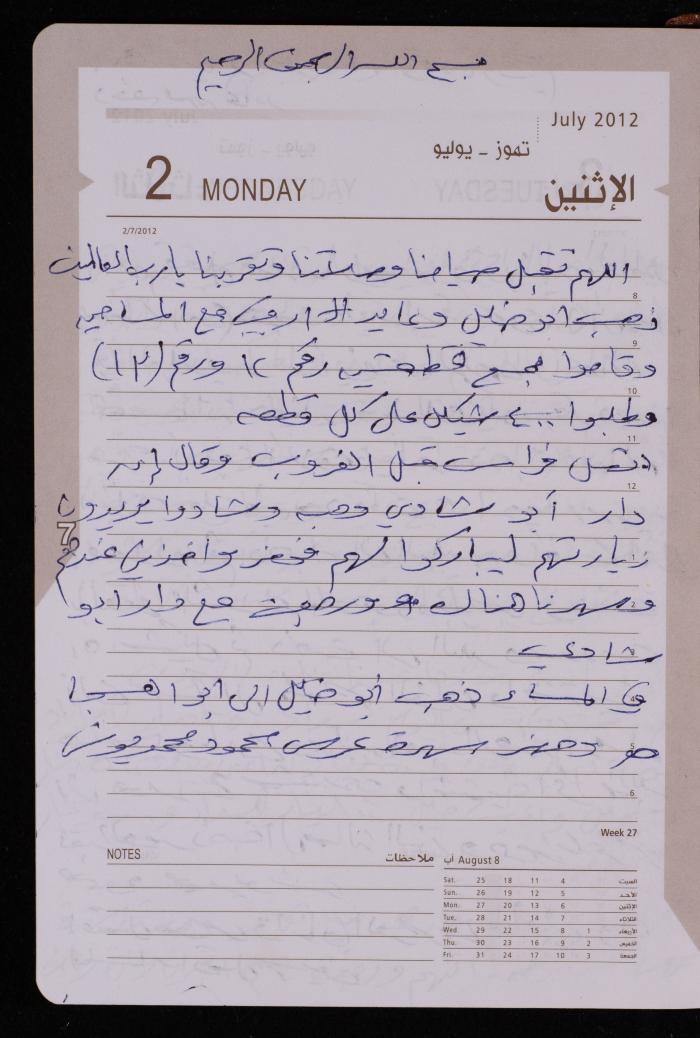 بسم الله الرحمن الرحيم
July 2012
تموز - يوليو
2 MONDAY الإثنين
2/7/2012
اللهم تقبل صيامنا وصلاتنا وتقربنا يا رب العالمين
8
ذهب ابو خليل وعايد الى اروى مع المساحين
9
وقاموا بمسح قطعتين رقم ١٢ ورقم (١٣)
10
وطلبوا ٤٠٠ شيكل على كل قطعه
11
اتصل فراس قبل الغروب وقال إن
12
دار أبو شادي وحبه وشادوا يريدون
7
زيارتهم ليباركوا لهم فحضر واخذني عندهم
وسهرنا هناك مع دار أبو
2
شادي
في المساء ذهب أبو خليل الى ابو
4
هو وحضر سهرة عرس محمود محمد
5
6
Week 27
NOTES ملاحظات
August 8 آب
Sat. 25 18 11 4 السبت
Sun. 26 19 12 5 الأحد
Mon. 27 20 13 6 الإثنين
Tue. 28 21 14 7 الثلاثاء
Wed. 29 22 15 8 1 الأربعاء
Thu. 30 23 16 9 2 الخميس
Fri. 31 24 17 10 3 الجمعة